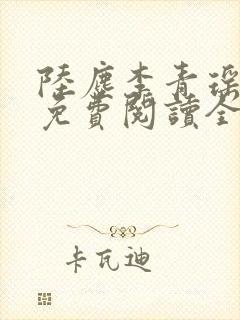 陸塵李青瑤
免費閱讀全
卡瓦迪